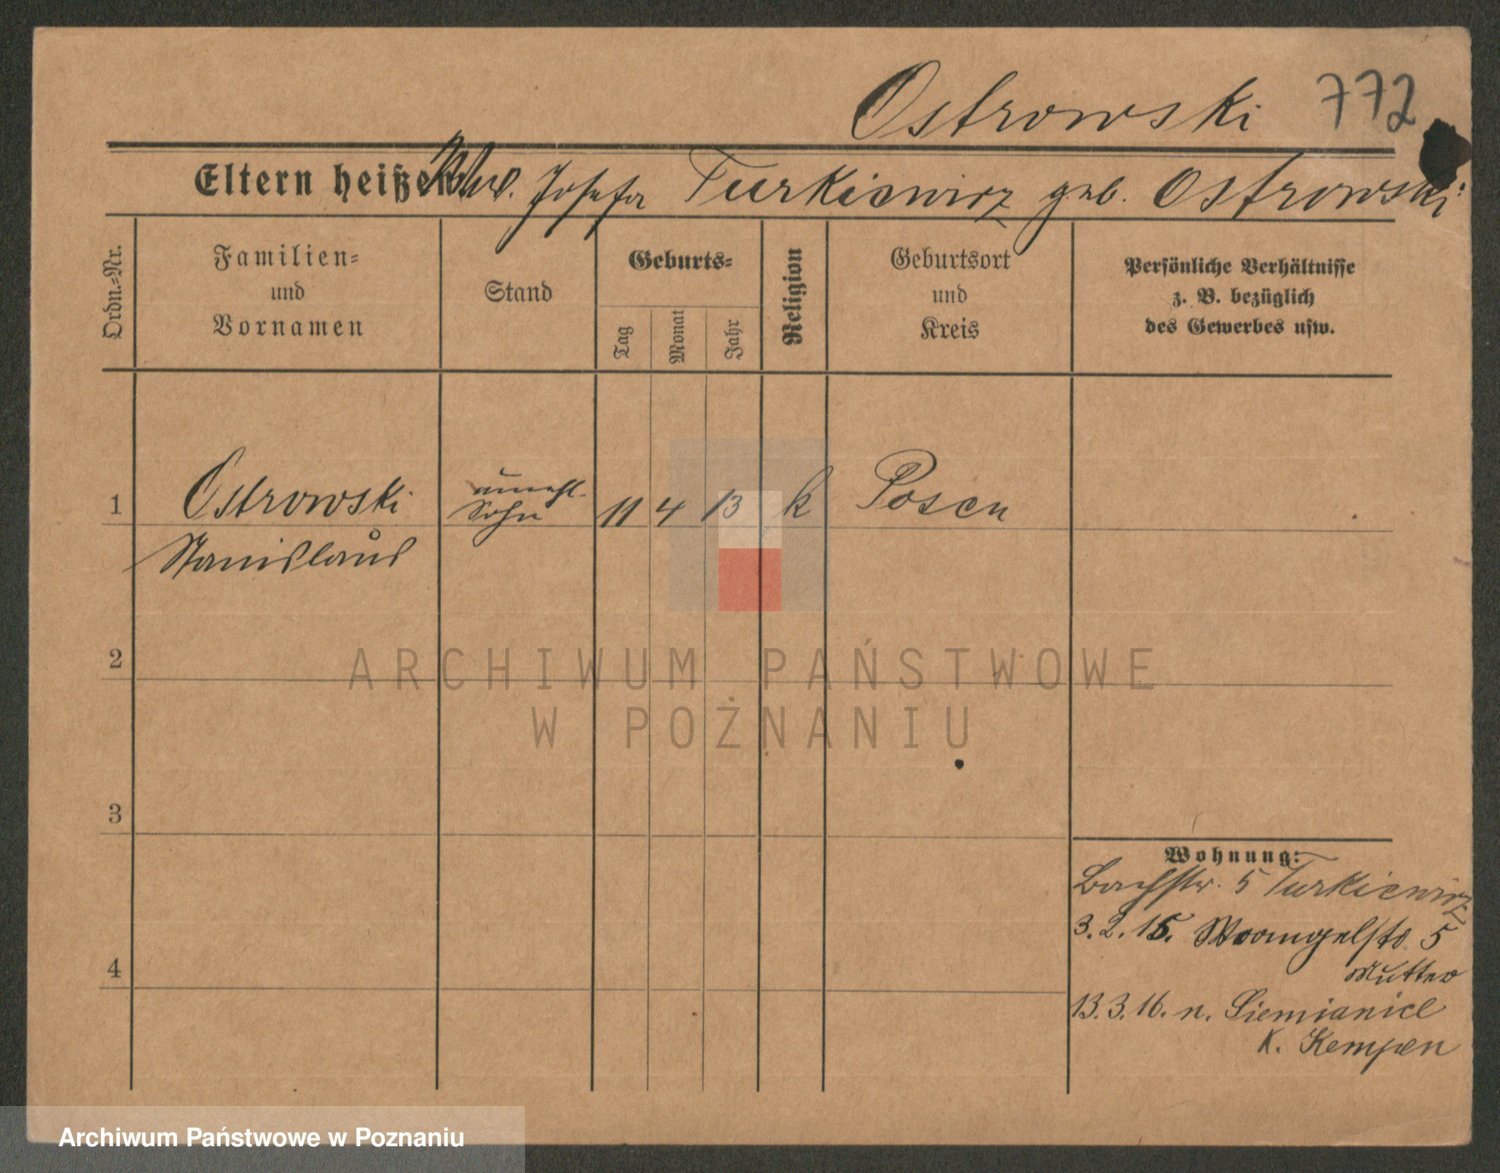 Ostrowski 772
Eltern heißen Wwe. Josefa Turkiewicz geb. Ostrowski
Ordn.=Nr.
Familien=
und
Vornamen
Stand
Geburts=
Tag
Monat
Jahr
Religion
Geburtsort
und
Kreis
Persönliche Verhältnisse
z. B. bezüglich
des Gewerbes usw.
1 Ostrowski unehl. 11 4 13 k Posen
Stanislaus Sohn
2
3
4
Wohnung:
Bachstr. 5 Turkiewicz
3.2.15. Wrangelstr. 5
Mutter
13.3.16. n. Siemianice
K. Kempen
ARCHIWUM PAŃSTWOWE
W POZNANIU
Archiwum Państwowe w Poznaniu